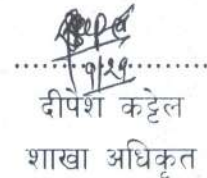 ९/२९
दीपेश कट्टेल
शाखा अधिकृत